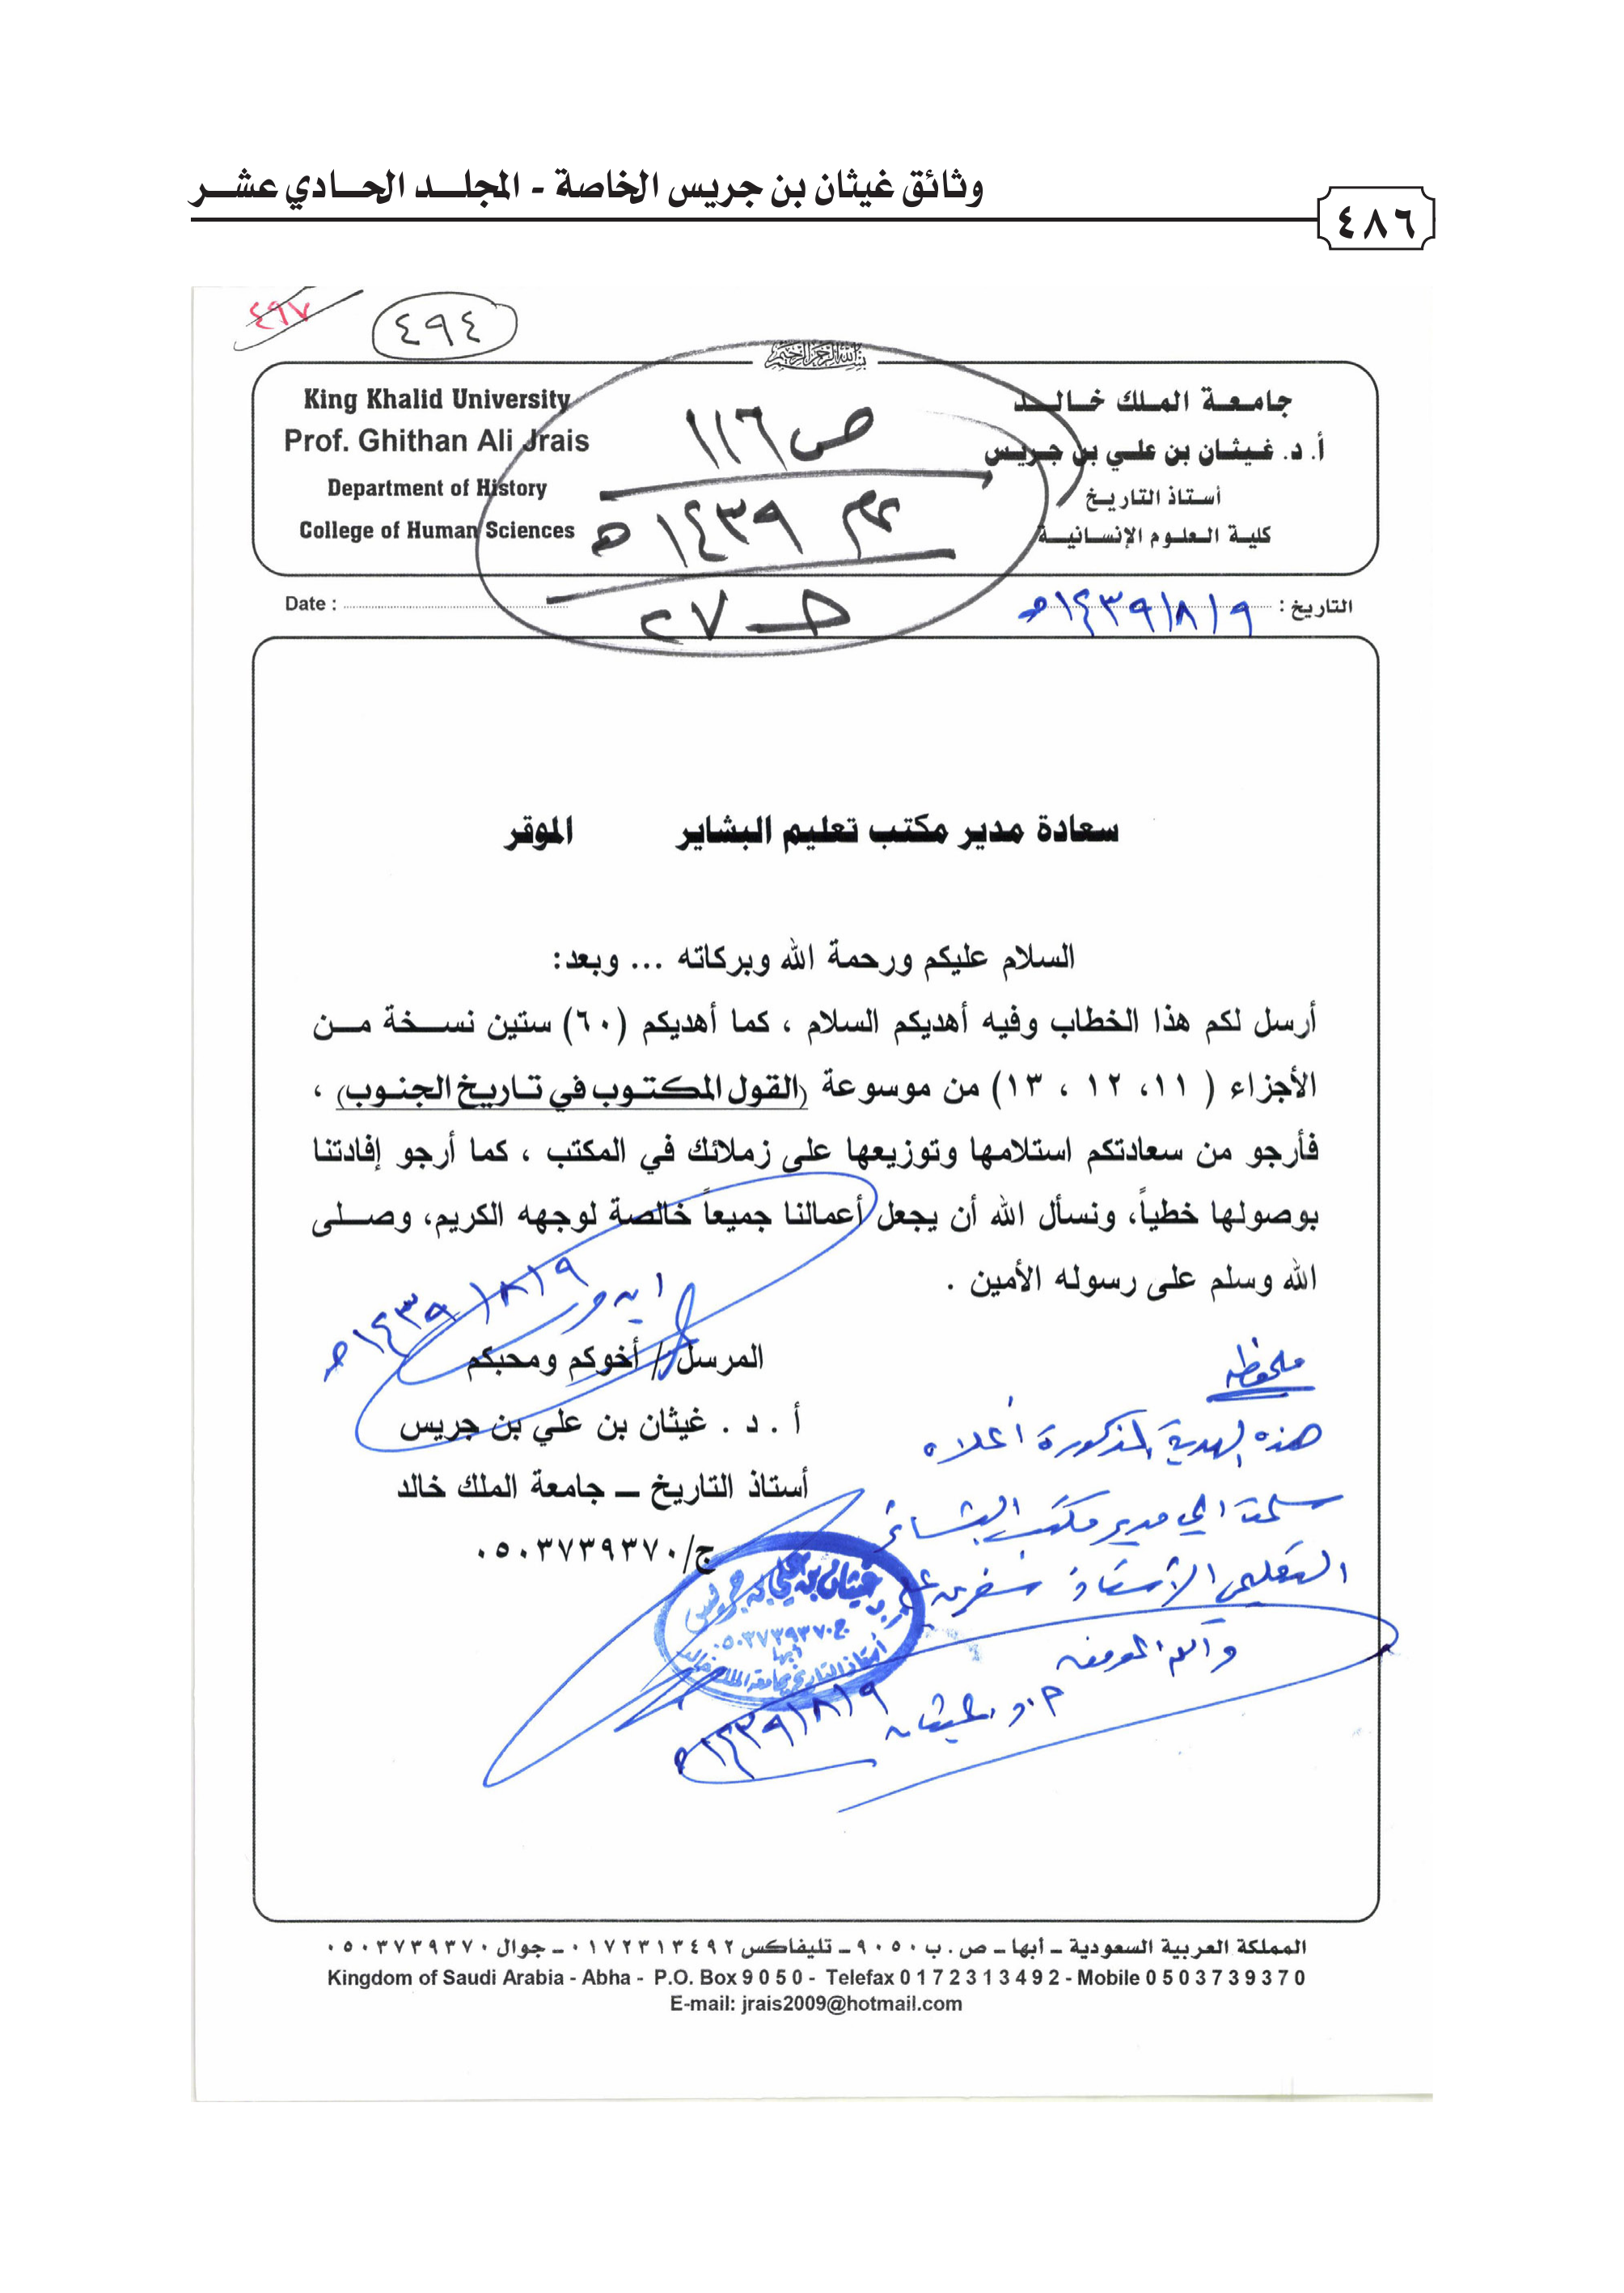 وثائق غيثان بن جريس الخاصة - المجلد الحادي عشر
٤٨٦
٤٩٧
٤٩٤
بسم الله الرحمن الرحيم
جامعة الملك خالد
أ. د. غيثان بن علي بن جريس
أستاذ التاريخ
كلية العلوم الإنسانية
King Khalid University
Prof. Ghithan Ali Jrais
Department of History
College of Human Sciences
ص ١١٦
عام ١٤٣٩ هـ
٢٧
التاريخ : ١٤٣٩/٨/٩هـ
Date :
سعادة مدير مكتب تعليم البشاير الموقر
السلام عليكم ورحمة الله وبركاته ... وبعد:
أرسل لكم هذا الخطاب وفيه أهديكم السلام ، كما أهديكم (٦٠) ستين نسخة من
الأجزاء ( ١١، ١٢ ، ١٣) من موسوعة (القول المكتوب في تاريخ الجنوب) ،
فأرجو من سعادتكم استلامها وتوزيعها على زملائك في المكتب ، كما أرجو إفادتنا
بوصولها خطياً، ونسأل الله أن يجعل أعمالنا جميعاً خالصة لوجهه الكريم، وصلى
الله وسلم على رسوله الأمين .
١٤٣٩/٨/٩هـ
المرسل/ أخوكم ومحبكم
أ . د . غيثان بن علي بن جريس
أستاذ التاريخ – جامعة الملك خالد
ج/٠٥٠٣٧٣٩٣٧٠
ملحوظة
هذه الهدية المذكورة أعلاه
سلمت الى مدير مكتب البشائر
التعليمي الأستاذ
والله الموفق
أ.د. غيثان
١٤٣٩/٨/٩هـ
أ.د. غيثان بن علي بن جريس
ج ٠٥٠٣٧٣٩٣٧٠
أبها
أستاذ التاريخ بجامعة الملك خالد
المملكة العربية السعودية – أبها – ص . ب ٩٠٥٠ – تليفاكس ٠١٧٢٣١٣٤٩٢ – جوال ٠٥٠٣٧٣٩٣٧٠
Kingdom of Saudi Arabia - Abha - P.O. Box 9 0 5 0 - Telefax 0 1 7 2 3 1 3 4 9 2 - Mobile 0 5 0 3 7 3 9 3 7 0
E-mail: jrais2009@hotmail.com